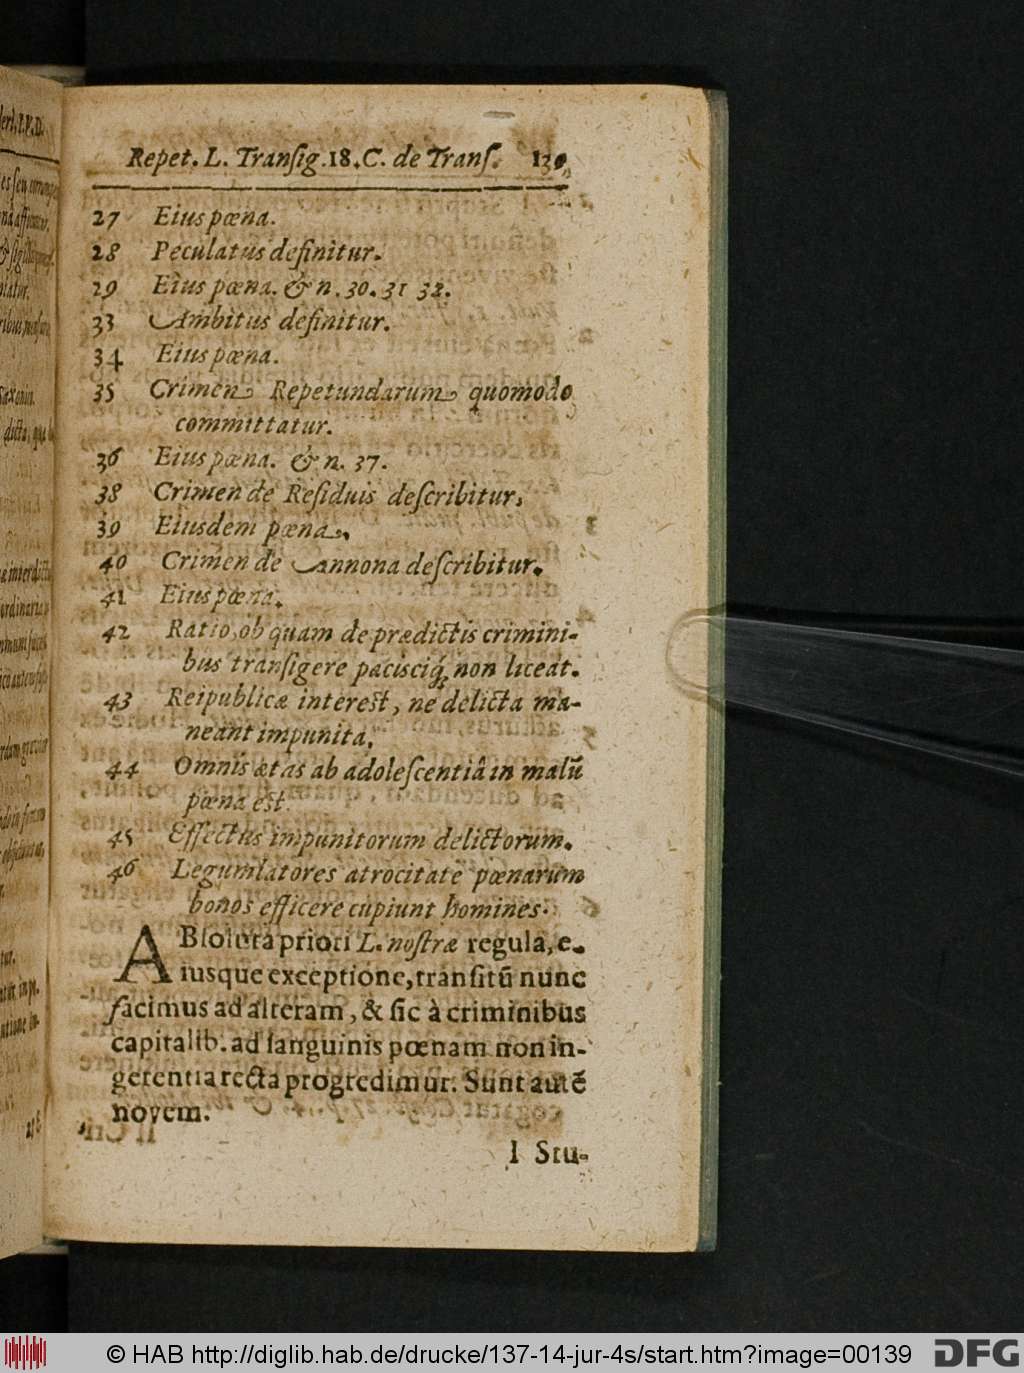 Repet. L. Tranſig. 18. C. de Tranſ.
27 Eius pœna.
28 Peculatus definitur.
29 Eius pœna. & n. 30. 31 32.
33 Ambitus definitur.
34 Eius pœna.
35 Crimen Repetundarum quomodo
committatur.
36 Eius pœna. & n. 37.
38 Crimen de Reſiduis deſcribitur,
39 Eiusdem pœna.
40 Crimen de Annona deſcribitur.
41 Eius pœna.
42 Ratio, ob quam de prædictis crimini-
bus tranſigere paciſciq; non liceat.
43 Reipublicæ intereſt, ne delicta ma-
neant impunita.
44 Omnis ætas ab adoleſcentiâ in malũ
pœna eſt.
45 Effectus impunitorum delictorum.
46 Legumlatores atrocitatẽ pœnarum
bonos efficere cupiunt homines.
ABſoluta priori L. noſtræ regula, e-
iusque exceptione, tranſitũ nunc
facimus ad alteram, & ſic à criminibus
capitalib. ad ſanguinis pœnam non in-
gerentia recta progredimur. Sunt autẽ
novem.
1 Stu-
© HAB http://diglib.hab.de/drucke/137-14-jur-4s/start.htm?image=00139
DFG